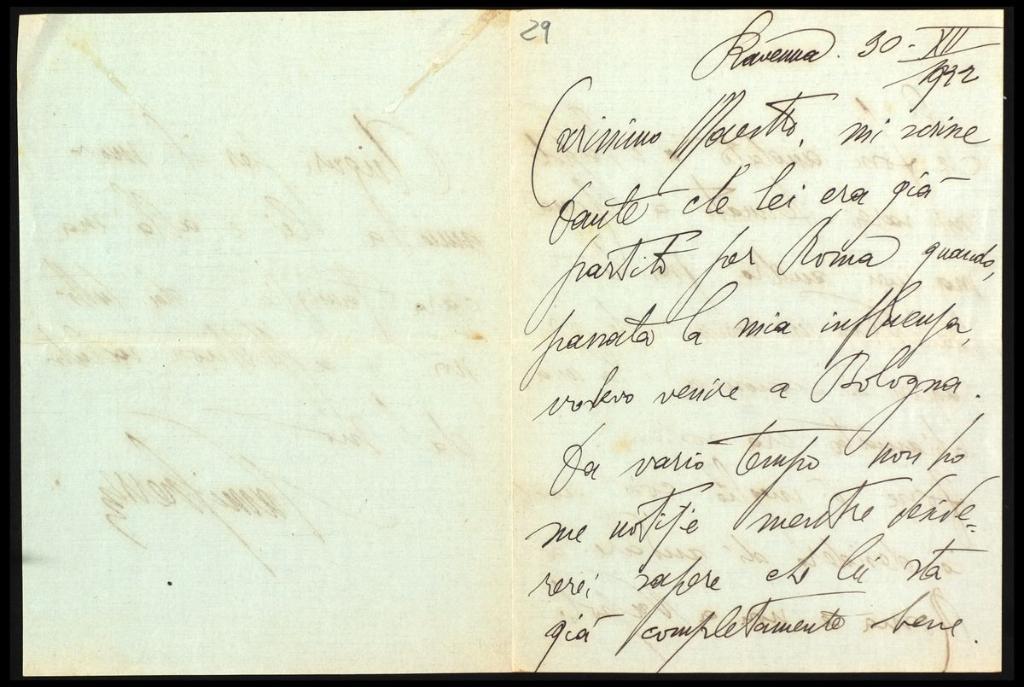 29
Ravenna. 30-XII
1922
Carissimo Maestro, mi scrive
Dante che lei era già
partito per Roma quando,
passata la mia influenza,
volevo venire a Bologna.
Da vario tempo non ho
sue notizie mentre deside=
rerei sapere che lei sta
già completamente bene.